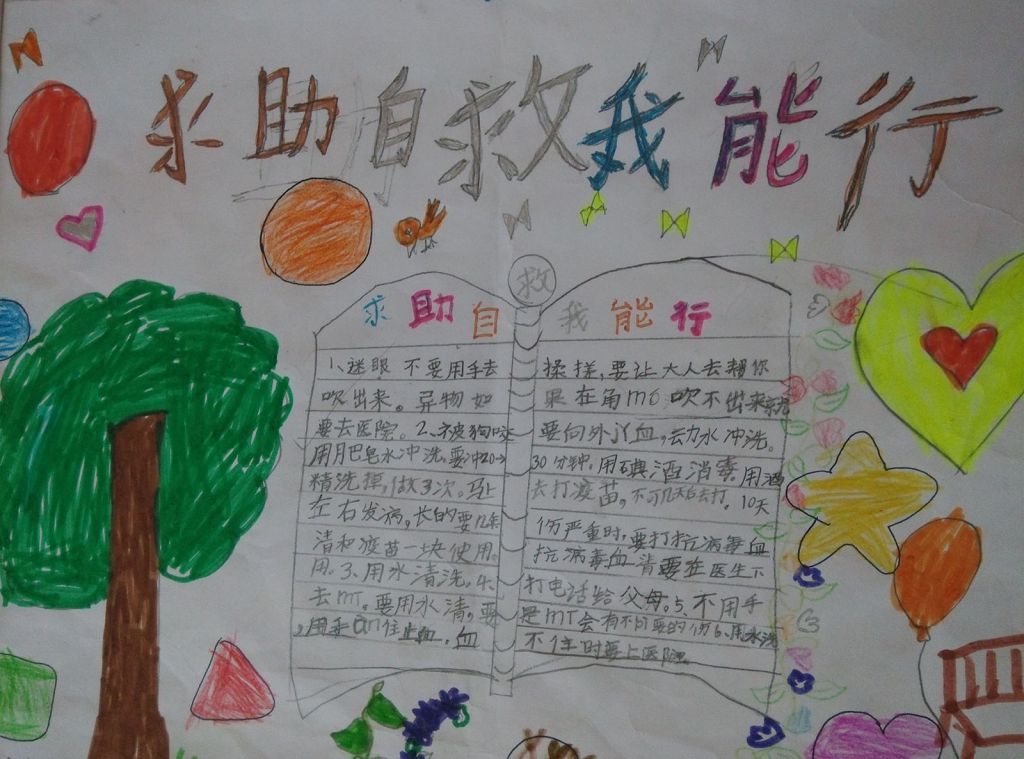 求助自救我能行
救
求助自 我能行
1、迷眼 不要用手去 揉搓,要让大人去帮你
吹出来。异物如 果在角mo吹不出来就
要去医院。2、被狗咬 要向外丫血,动水冲洗。
用月巴皂水冲洗,要冲20→ 30分钟,用碘酒消毒,用酒
精洗擦,做3次。马上 去打疫苗,不可几天后去打。10天
左右发病,长的要几年 伤严重时,要打抗病毒血
清和疫苗一块使用 抗病毒血清要在医生下
用。3、用水清洗,4、 打电话给父母。5、不用手
去mT。要用水清,要 是mT会有不可要的伤6、用水洗
,用手an住止血,血 不住时要上医院